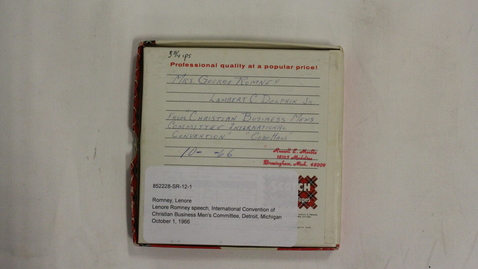 3¾ ips
Professional quality at a popular price!
MRS. GEORGE ROMNEY
LAMBERT C. DOLPHIN JR.
FROM CHRISTIAN BUSINESS MEN'S
COMMITTEE INTERNATIONAL
CONVENTION
10- -66
Birmingham, Mich. 48009
852228-SR-12-1
SCOTCH
Romney, Lenore
Lenore Romney speech, International Convention of
Christian Business Men's Committee, Detroit, Michigan
October 1, 1966